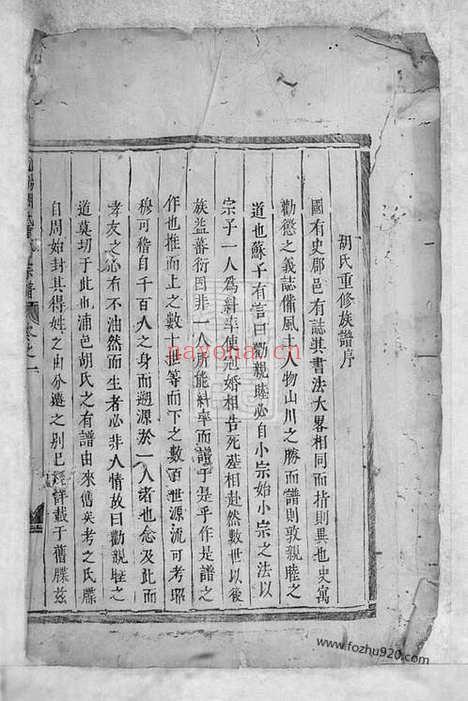 胡氏重修族譜序
國有史郡邑有誌其書法大畧相同而指則異也史寓
勸懲之義誌備風土人物山川之勝而譜則敦親睦之
道也蘇子有言曰勸親睦必自小宗始小宗之法以
宗子一人為糾率使冠婚相告死塟相赴然數世以後
族益蕃衍固非一人所能糾率而譜于是乎作是譜之
作也推而上之數十世等而下之數百世源流可考昭
穆可稽自千百人之身而遡源於一人緒也念及此而
孝友之心有不油然而生者必非人情故曰勸親睦之
道莫切于此也浦邑胡氏之有譜由來舊矣考之氏牒
自周始封其得姓之由分遷之別已經詳載于舊牒茲
nayona.cn
www.fozhu920.com